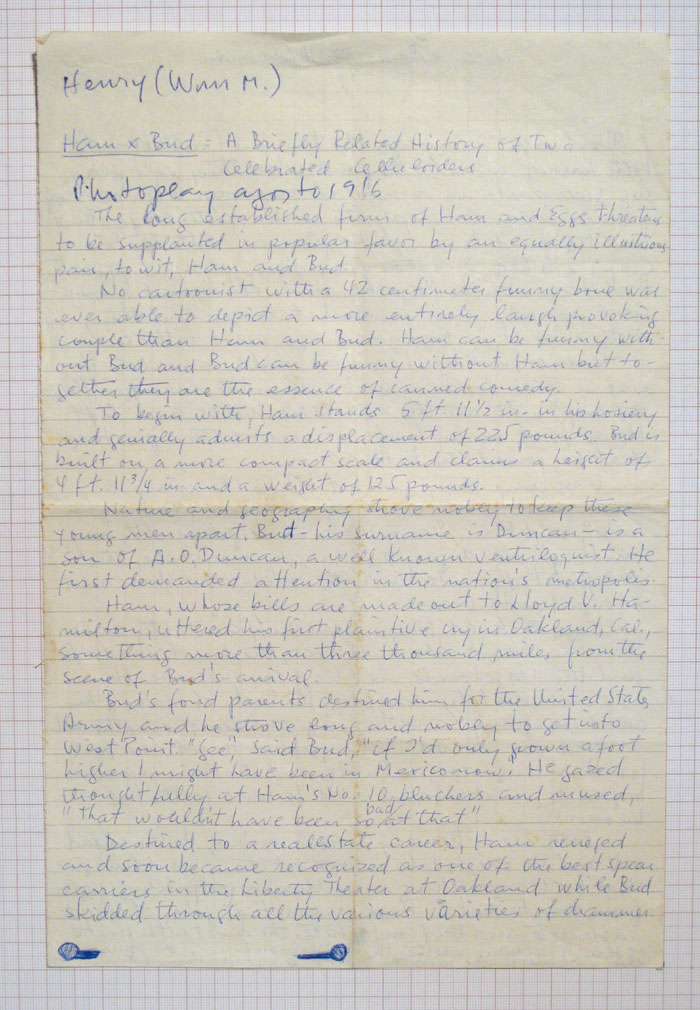 Henry (Wm M.)
Ham & Bud: A Briefly Related History of Two
Celebrated Celluloiders
Photoplay agosto 1916
The long established firm of Ham and Eggs threatens
to be supplanted in popular favor by an equally illustrious
pair, to wit, Ham and Bud.
No cartoonist with a 42 centimeter funny bone was
ever able to depict a more entirely laugh provoking
couple than Ham and Bud. Ham can be funny with-
out Bud and Bud can be funny without Ham but to-
gether they are the essence of canned comedy.
To begin with, Ham stands 5 ft. 11 1/2 in. in his hosiery
and genially admits a displacement of 225 pounds. Bud is
built on a more compact scale and claims a height of
4 ft. 11 3/4 in and a weight of 125 pounds.
Nature and geography strove nobly to keep these
young men apart. Bud - his surname is Duncan - is a
son of A.O. Duncan, a well known ventriloquist. He
first demanded attention in the nation's metropolis.
Ham, whose bills are made out to Lloyd V. Ha-
milton, uttered his first plaintive cry in Oakland, Cal.,
something more than three thousand miles from the
scene of Bud's arrival.
Bud's fond parents destined him for the United States
Army and he strove long and nobly to get into
West Point. "Gee", said Bud, "if I'd only grown a foot
higher I might have been in Mexico now." He gazed
thoughtfully at Ham's No. 10 bluchers and mused,
"That wouldn't have been so bad at that"
Destined to a real estate career, Ham reneged
and soon became recognized as one of the best spear
carriers in the Liberty Theater at Oakland while Bud
skidded through all the various varieties of drammer.